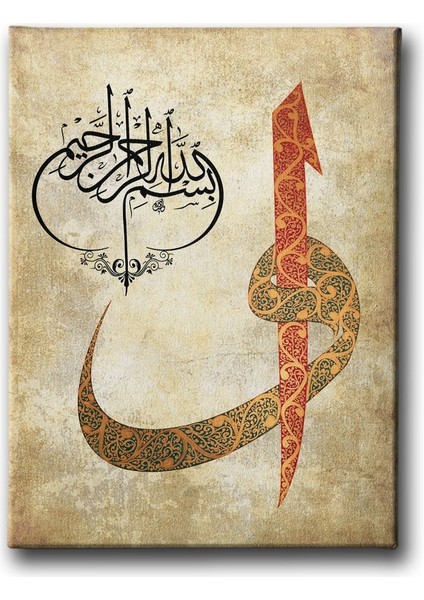 بسم الله الرحمن الرحيم
او